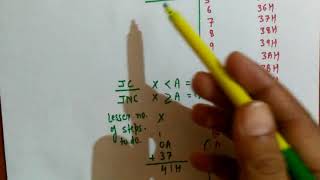 5
6 36H
7 37H
8 38H
9 39H
3AH
3AH
JC X < A =
JNC X ≥ A =
Lesser no. X
of steps
to do. 1
0A
+ 37
41H